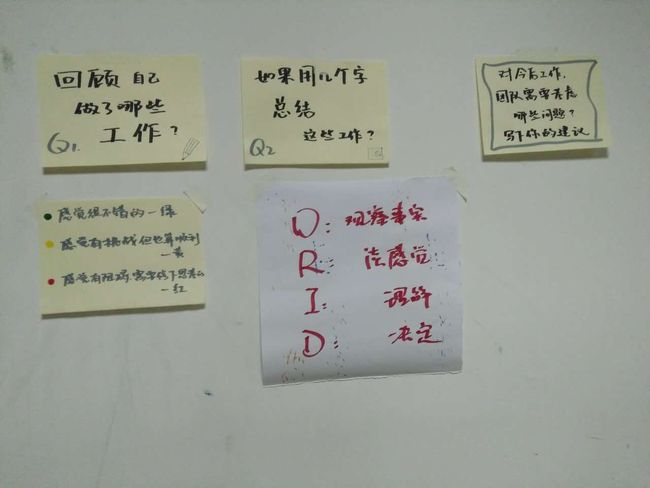 回顾自己
做了哪些
工作？
Q1.
如果用几个字
总结
这些工作？
Q2
对今后工作，
团队需要考虑
哪些问题？
写下你的建议
感觉很不错的一绿
感觉有挑战但也算顺利
一黄
感觉有阻碍，需要线下思考的
一红
O：观察事实
R：谈感觉
I：理解
D：决定